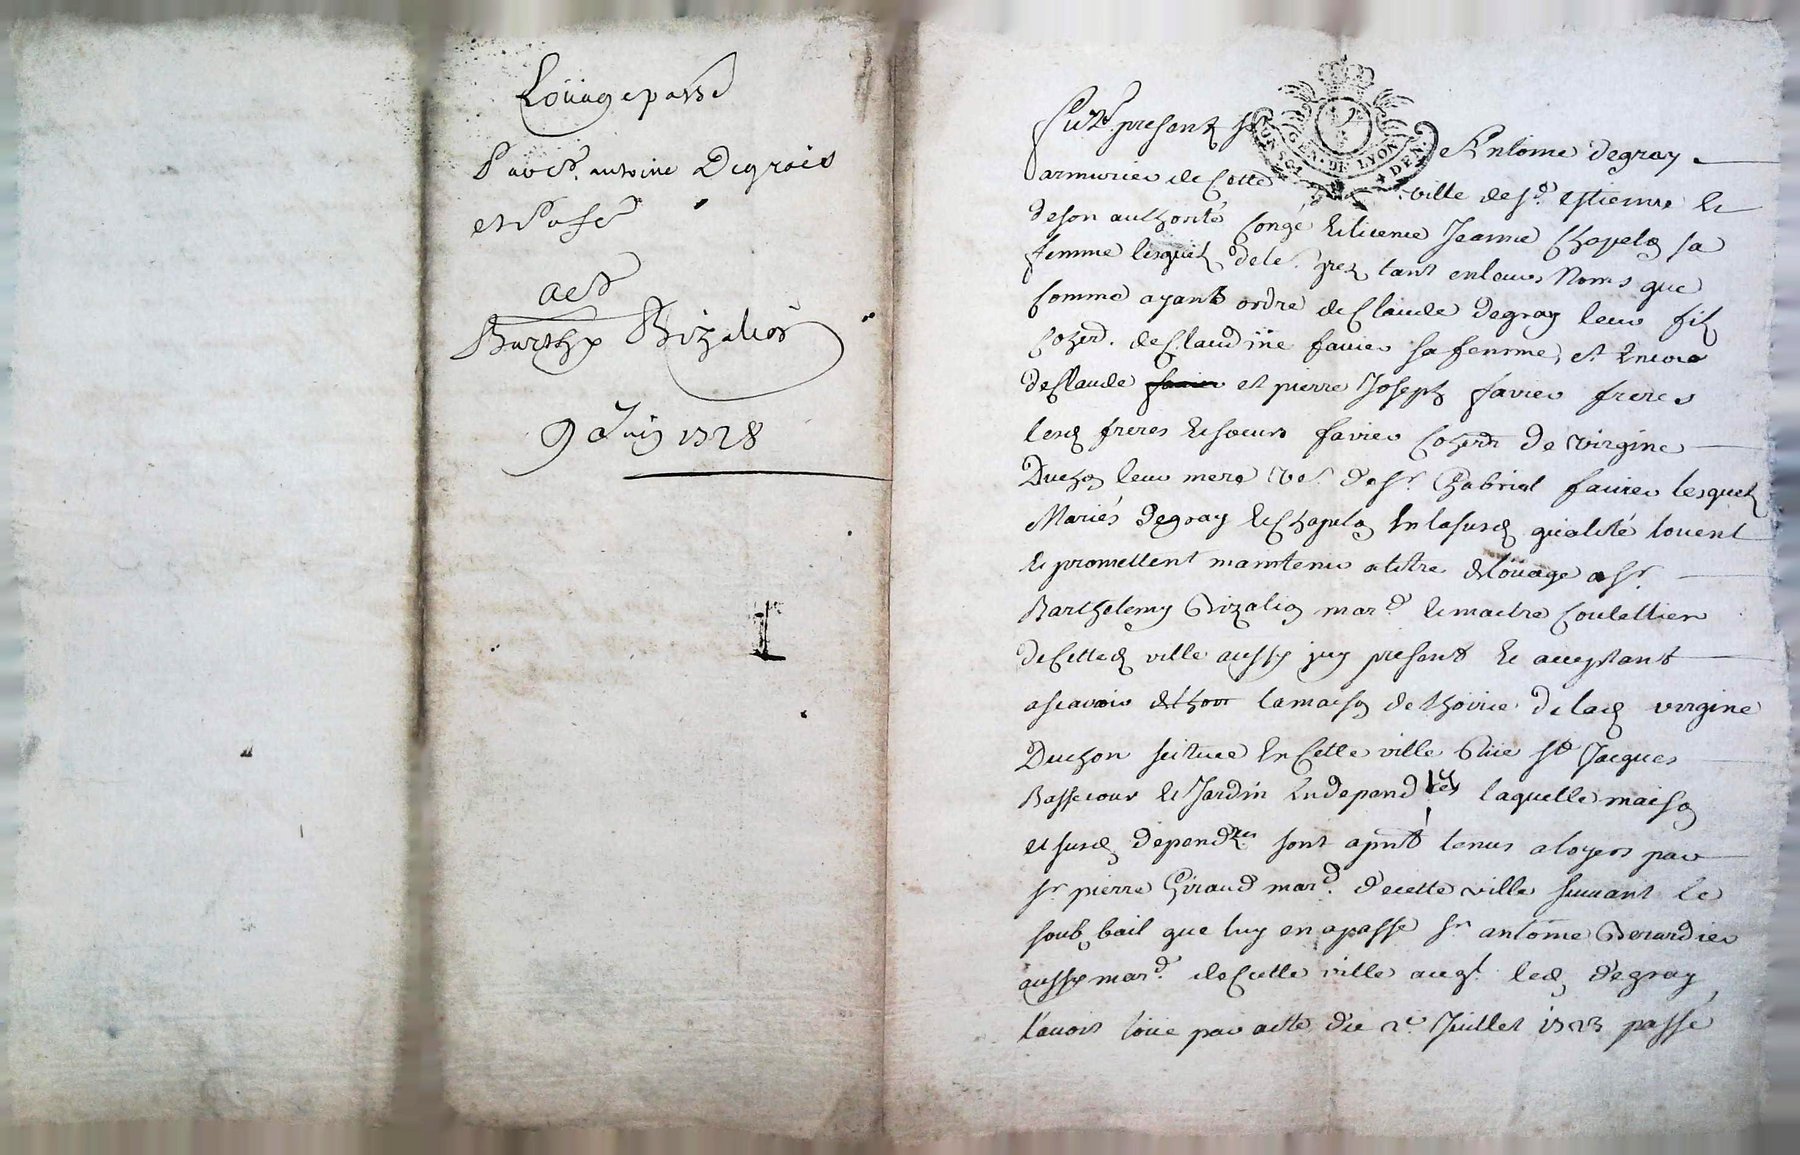 Loüage passé
Par Sr. antoine Degrais
et sa fe
a Sr
Barthy Bizalion
9 Juin 1728
GEN · DE LYON
DEN
Fut present Sr Antoine degray
armurier de Cette ville de St. Estienne et
de son authorité Congé et licence Jeanne Chapelon sa
femme lesquels de leur gré tant en leurs Noms que
Comme ayant ordre de Claude degray leur fils
de Claudine favier sa femme, et Encore
de Claude favier et pierre Joseph favier freres
lesd freres et soeurs favier de virgine
Duchon leur mere ve. de Sr. Gabriel favier lesquels
Mariés degray et Chapelon En lasusd qualité louent
et promettent maintenir a titre de loüage a Sr.
Barthelemy Bizalion mard et maitre Coutellier
de Cetted ville aussy icy present et acceptant
ascavoir la maison de lad virgine
Duchon scituée En Cette ville Rüe St Jacques
Bassecour et Jardin En dependts laquelle maison
et susd dependces sont apnt tenus a loyers par
Sr pierre Giraud mard. de cette ville suivant le
soub bail que luy en a passé Sr antoine Berardier
aussy mard. de Cette ville auql led degray
l'avoit loüé par acte du 2e Juillet 1723 passé